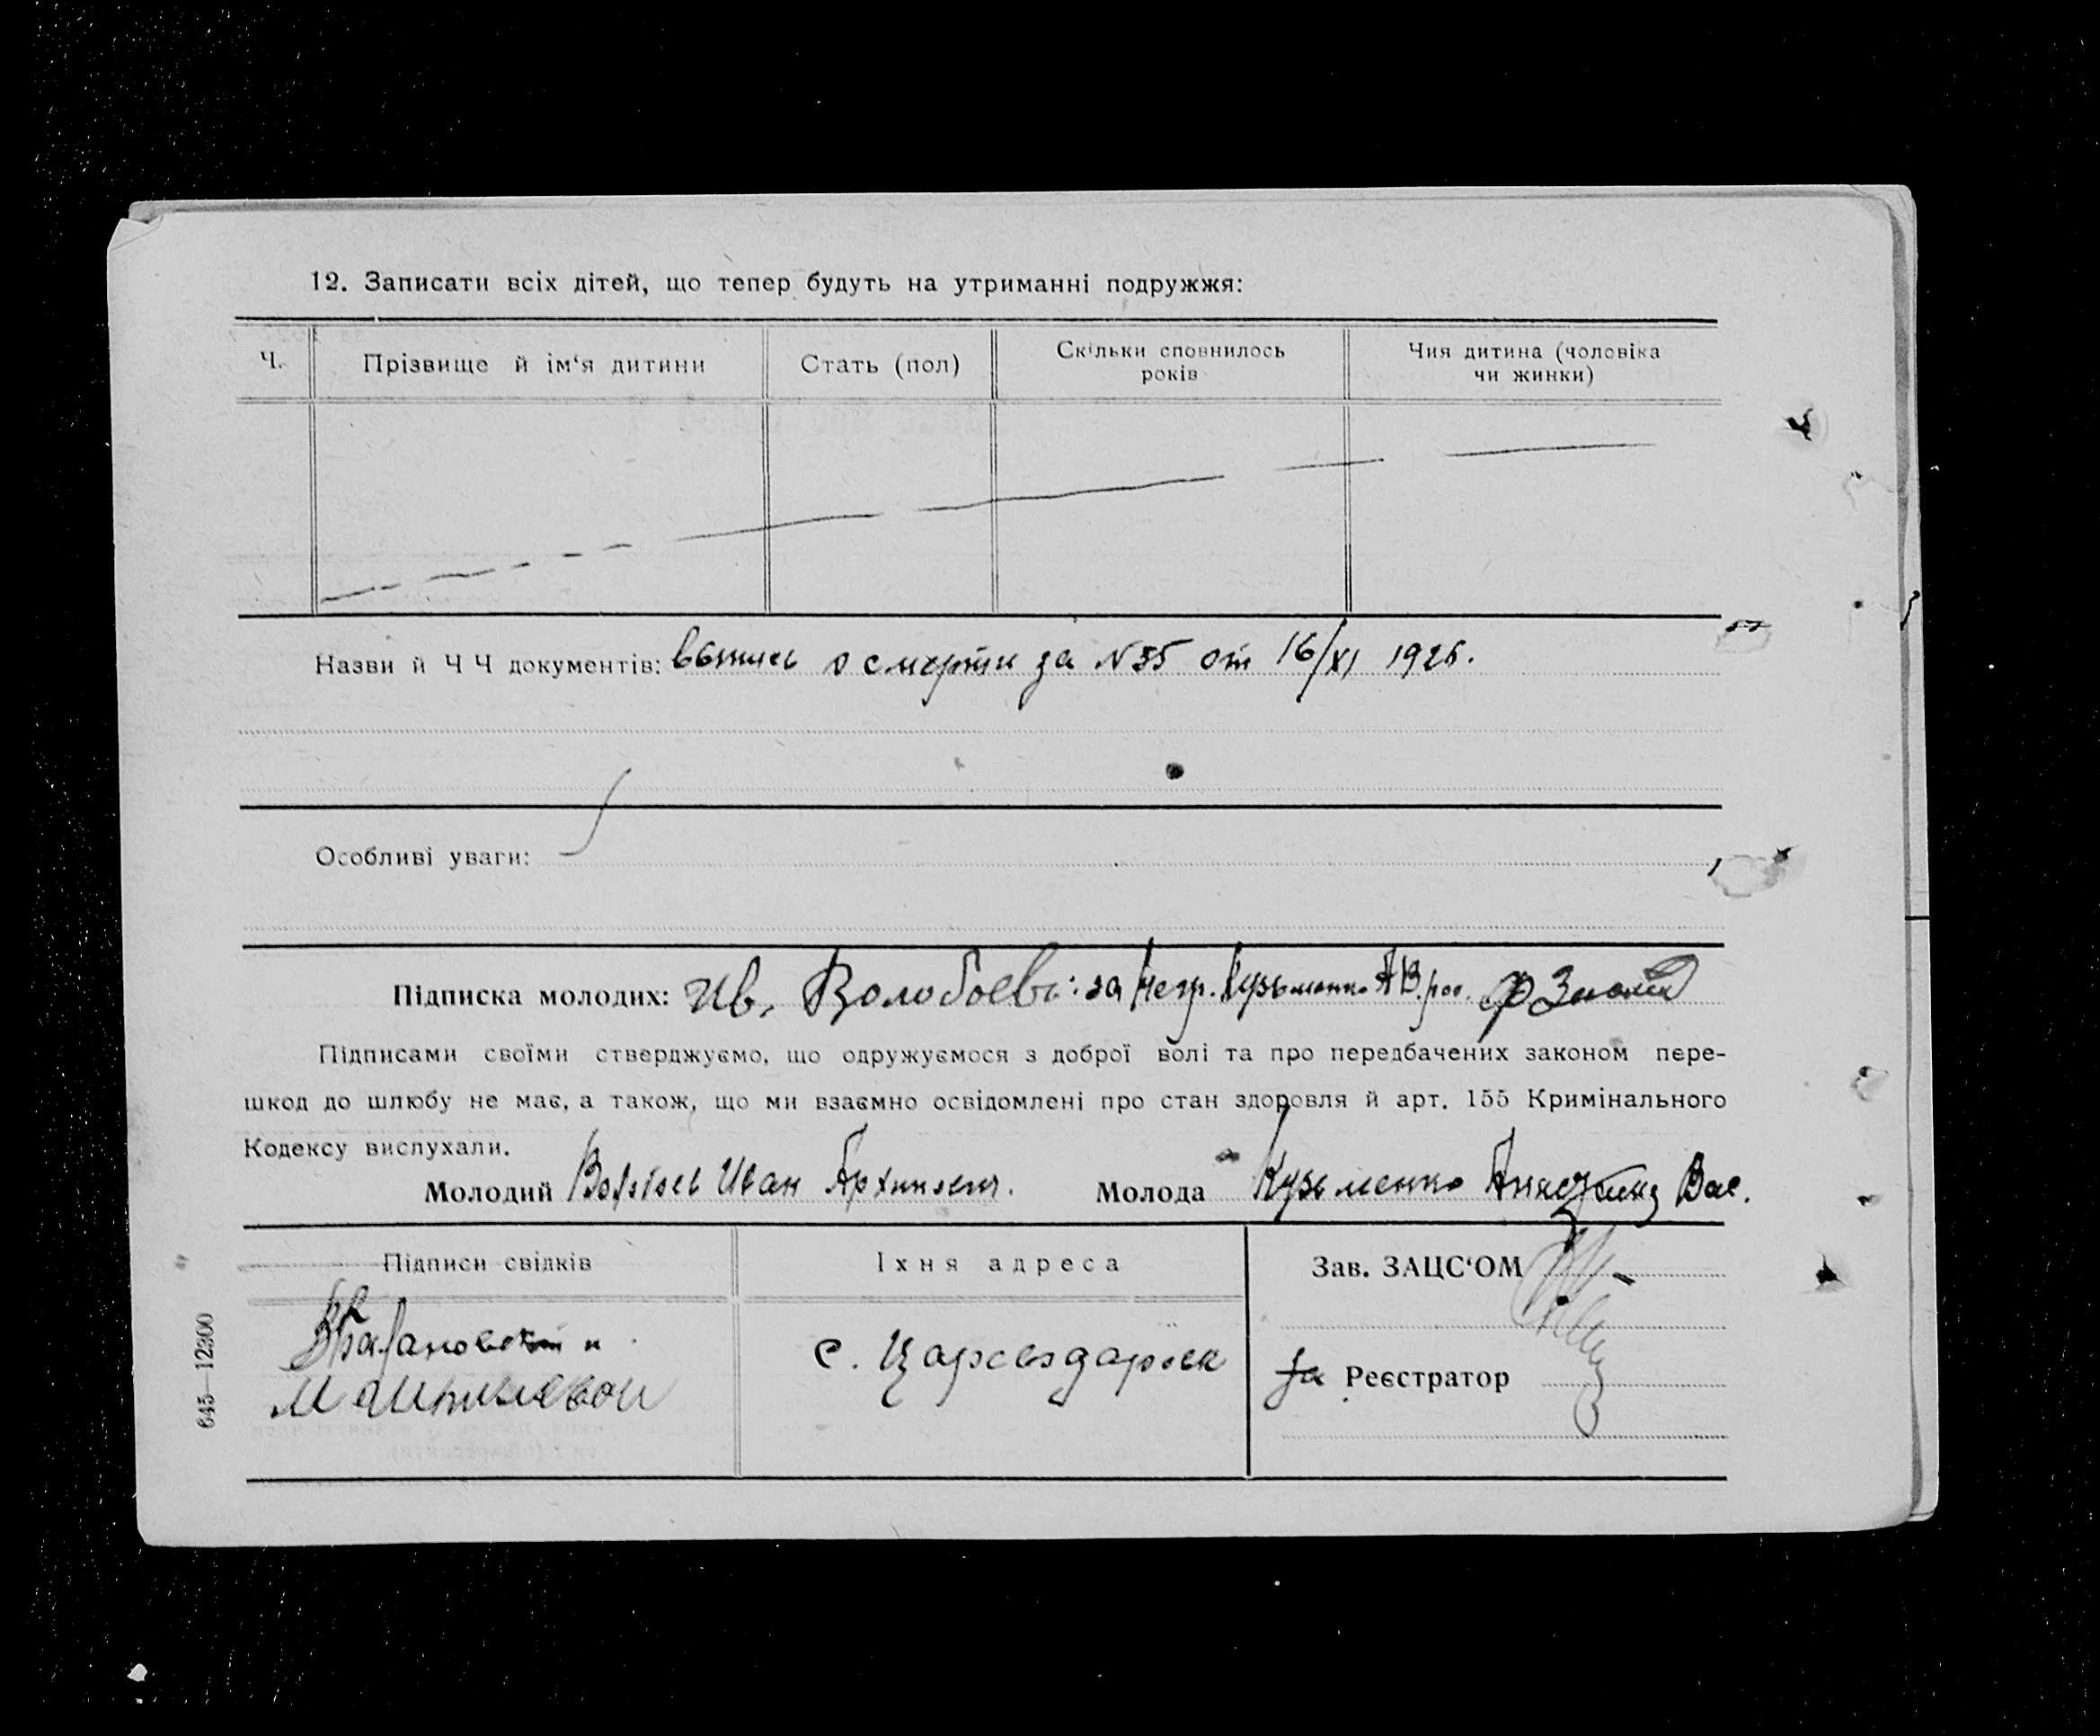 12. Записати всіх дітей, що тепер будуть на утриманні подружжя:
Ч.
Прізвище й ім‘я дитини
Стать (пол)
Скільки сповнилось
років
Чия дитина (чоловіка
чи жинки)
Назви й Ч Ч документів: выпись о смерти за N 35 от 16/XI 1926.
Особливі уваги:
Підписка молодих: Ив. Волобоевъ: за негр. Кузьменко А В. рос.
Підписами своїми стверджуємо, що одружуємося з доброї волі та про передбачених законом пере-
шкод до шлюбу не має, а також, що ми взаємно освідомлені про стан здоровля й арт. 155 Кримінального
Кодексу вислухали.
Молодий Иван Архипович. Молода Кузьменко Вас.
Підписи свідків
Їхня адреса
Зав. ЗАЦС‘ОМ
с.
за Реєстратор
645—12300